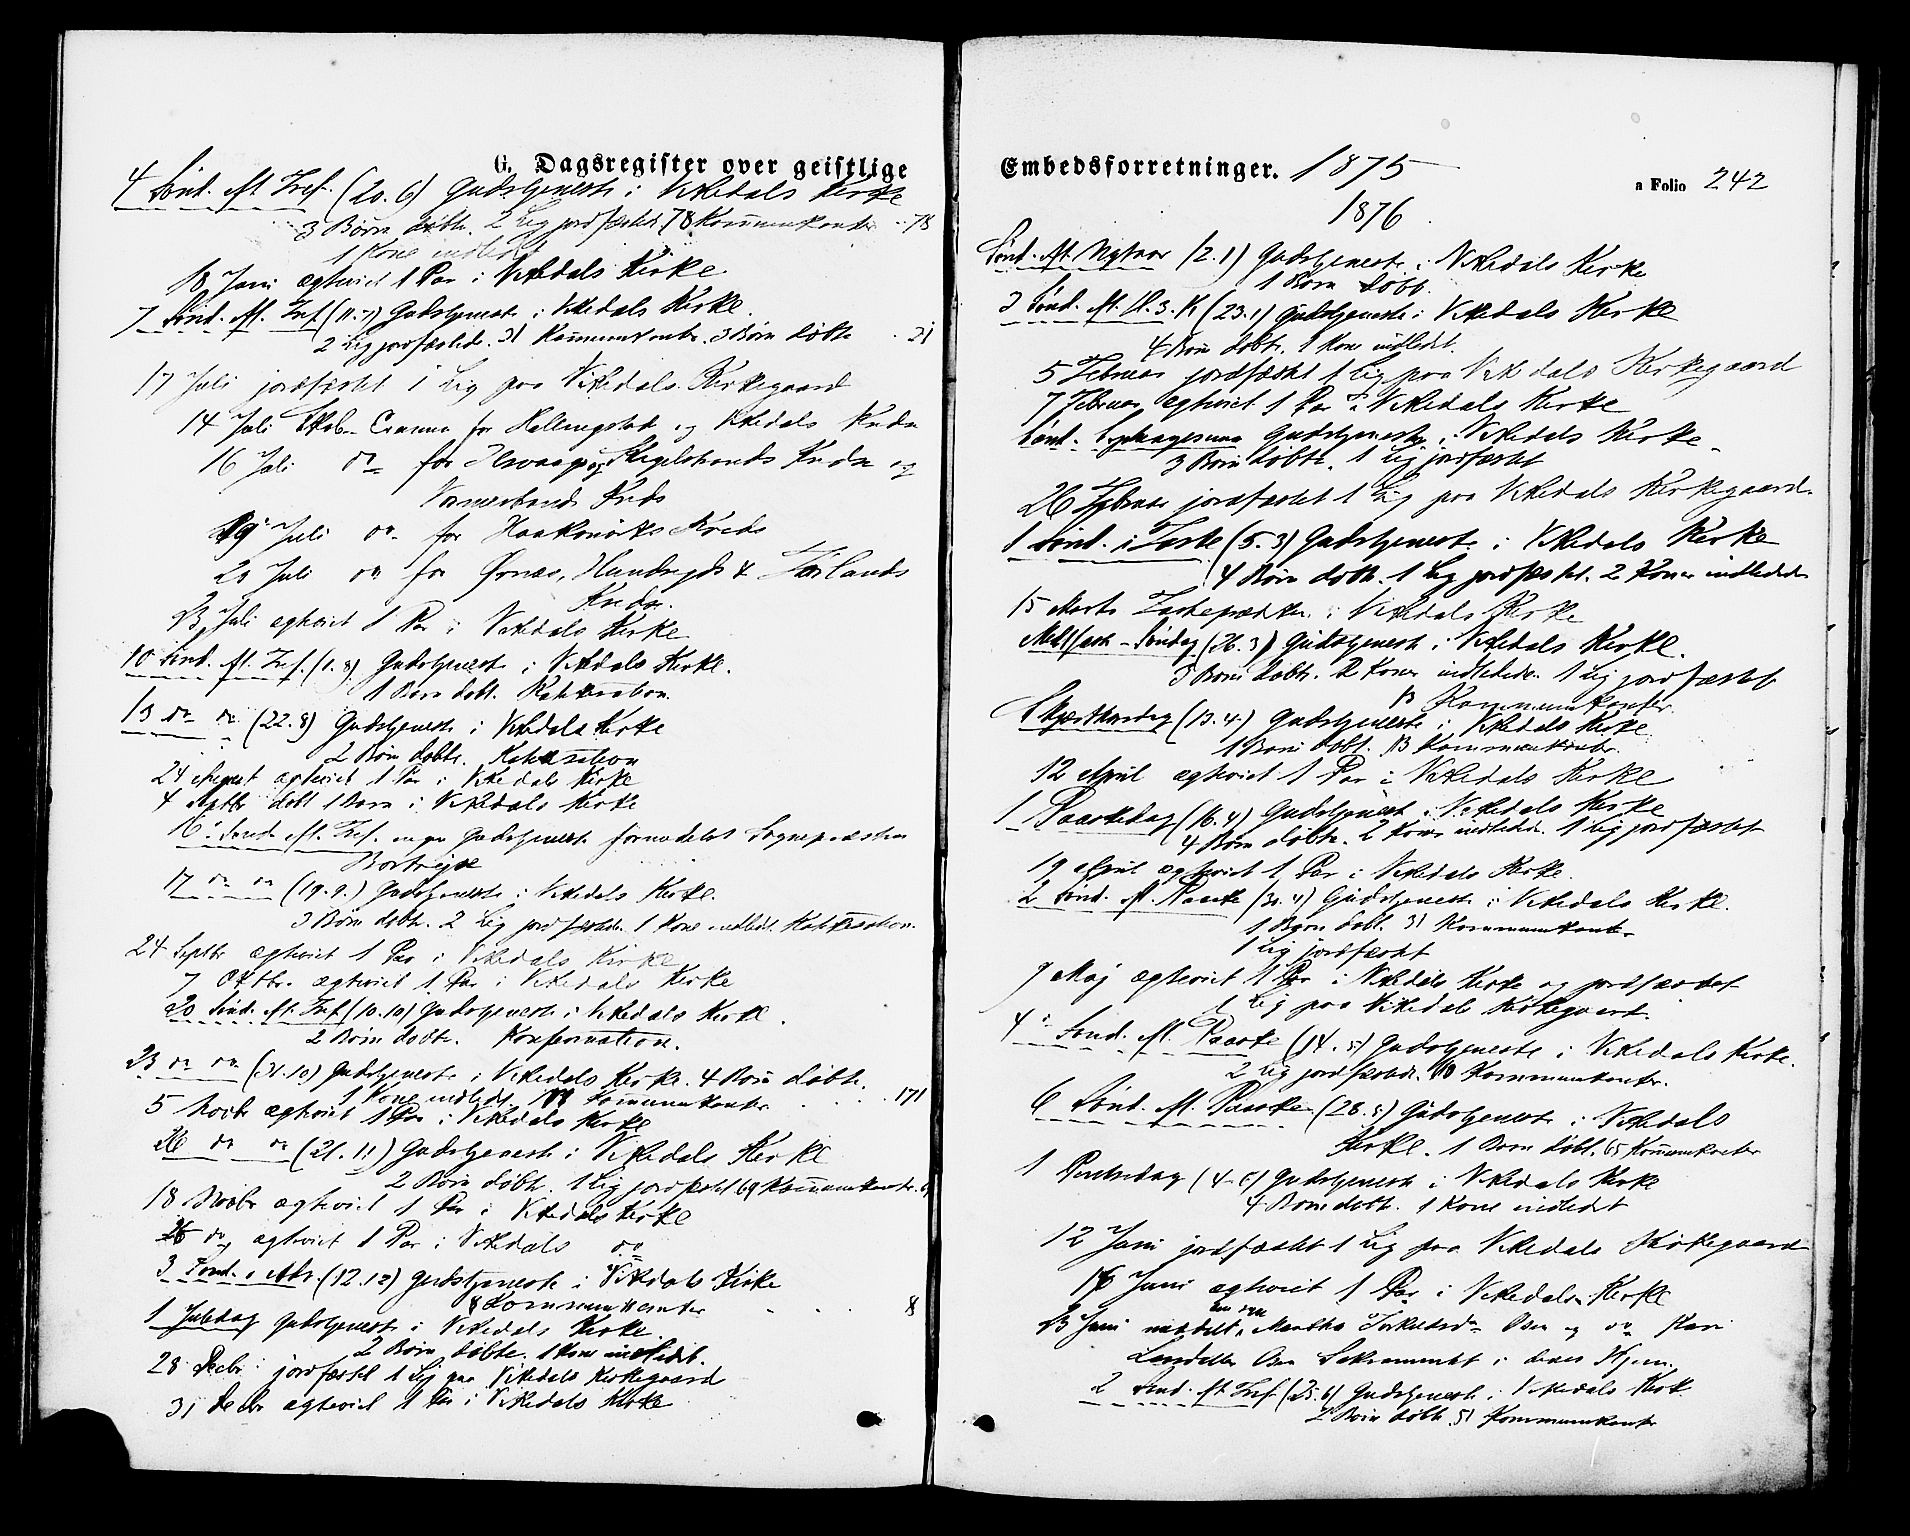 G. Dagsregister over geistlige
4 Sönd. eft. Tref. (20.6) Gudstjeneste i Vikedals Kirke
3 Börn döbte. 2 Lig jordfæstede 78 Kommunikanter .. 78
1 Kone indledet
18 Juni ægteviet 1 Par i Vikedals Kirke
7 Sönd. eft. Tref (11.7) Gudstjeneste i Vikedals Kirke.
2 Lig jordfæstede. 31 Kommunikanter. 3 Börn döbte . 31
17 Juli jordfæstet 1 Lig paa Vikedals Kirkegaard
14 Juli Skole Examen for Hallingstad og Vikedals Kredse
16 Juli do for og Kredse og
Kreds
19 Juli do for Haakonviks Kreds
20 Juli do for Örnes, & Kredse.
23 Juli ægteviet 1 Par i Vikedals Kirke
10 Sönd. eft. Tref. (1.8) Gudstjeneste i Vikedals Kirke.
1 Barn döbt. Katekisation.
13 do do (22.8) Gudstjeneste i Vikedals Kirke
2 Börn döbte. Katekisation
24 August ægteviet 1 Par i Vikedals Kirke
4 Septbr döbt 1 Barn i Vikedals Kirke
16 Sönd. eft. Tref. ingen Gudstjeneste formedelst Sognepræsten
Bortreise
17 do do (19.9.) Gudstjeneste i Vikedals Kirke.
3 Börn döbte. 2 Lig jordfæstede. 1 Kone indledt. Katekisation.
24 Septbr ægteviet 1 Par i Vikedals Kirke
7 Oktbr. ægteviet 1 Par i Vikedals Kirke
20 Sönd. eft. Tref (10.10) Gudstjeneste i Vikedals Kirke.
2 Börn döbte. Konfirmation.
23 do do (31.10) Gudstjeneste i Vikedals Kirke. 4 Börn döbte.
1 Kone indledt. 171 Kommunikanter . . . . 171
5 Novbr ægteviet 1 Par i Vikedals Kirke
26 do do (21.11) Gudstjeneste i Vikedals Kirke
2 Börn döbte. 1 Lig jordfæstet 69 Kommunikanter. 69
18 Novbr ægteviet 1 Par i Vikedals Kirke
26 do ægteviet 1 Par i Vikedals do
3 Sönd. i Adv. (12.12) Gudstjeneste i Vikedals Kirke
8 Kommunikanter . . . 8
1 Juledag Gudstjeneste i Vikedals Kirke.
2 Börn döbte. 1 Kone indledt.
28 Decbr jordfæstet 1 Lig paa Vikedals Kirkegaard
31 Decbr ægteviet 1 Par i Vikedals Kirke
Embedsforretninger. 1875
a Folio 242
1876
Sönd. eft. Nytaar (2.1) Gudstjeneste i Vikedals Kirke
1 Barn döbt.
3 Sönd. eft. H. 3. K (23.1) Gudstjeneste i Vikedals Kirke
4 Börn döbte. 1 Kone indledet.
5 Februar jordfæstet 1 Lig paa Vikedals Kirkegaard
7 Februar ægteviet 1 Par i Vikedals Kirke
Sönd. Septuagesima Gudstjeneste i Vikedals Kirke
3 Börn döbte. 1 Lig jordfæstet
26 Februar jordfæstet 1 Lig paa Vikedals Kirkegaard.
1 Sönd. i Faste (5.3) Gudstjeneste i Vikedals Kirke
4 Börn döbte. 1 Lig jordfæstet. 2 Koner indledede
15 Marts Fasteprædiken i Vikedals Kirke
Midfaste-Söndag (26.3) Gudstjeneste i Vikedals Kirke.
3 Börn döbte. 2 Koner indledede. 1 Lig jordfæstet
13 Kommunikanter.
Skjærthorsdag (13.4.) Gudstjeneste i Vikedals Kirke
1 Barn döbt. 13 Kommunikanter.
12 April ægteviet 1 Par i Vikedals Kirke
1 Paaskedag (16.4) Gudstjeneste i Vikedals Kirke
4 Börn döbte. 2 Koner indledede. 1 Lig jordfæstet
19 April ægteviet 1 Par i Vikedals Kirke.
2 Sönd. eft. Paaske (30.4) Gudstjeneste i Vikedals Kirke.
1 Barn döbt. 31 Kommunikanter
1 Lig jordfæstet
7 Maj ægteviet 1 Par i Vikedals Kirke og jordfæstet
1 Lig paa Vikedals Kirkegaard.
4 Sönd. eft. Paaske (14.5) Gudstjeneste i Vikedals Kirke.
2 Lig jordfæstede. Kommunikanter.
6 Sönd. eft. Paaske (28.5) Gudstjeneste i Vikedals
Kirke. 1 Barn döbt. 65 Kommunikanter
1 Pintsedag (4.6) Gudstjeneste i Vikedals Kirke
4 Börn döbte. 1 Kone indledet
12 Juni jordfæstet 1 Lig paa Vikedals Kirkegaard
16 Juni ægteviet 1 Par i Vikedals Kirke
23 Juni meddelt Martha Torkildsdr Öen og do
Sakramentet i deres Hjem.
2 Sönd. eft. Tref (25.6) Gudstjeneste i Vikedals Kirke
2 Börn döbte. 51 Kommunikanter